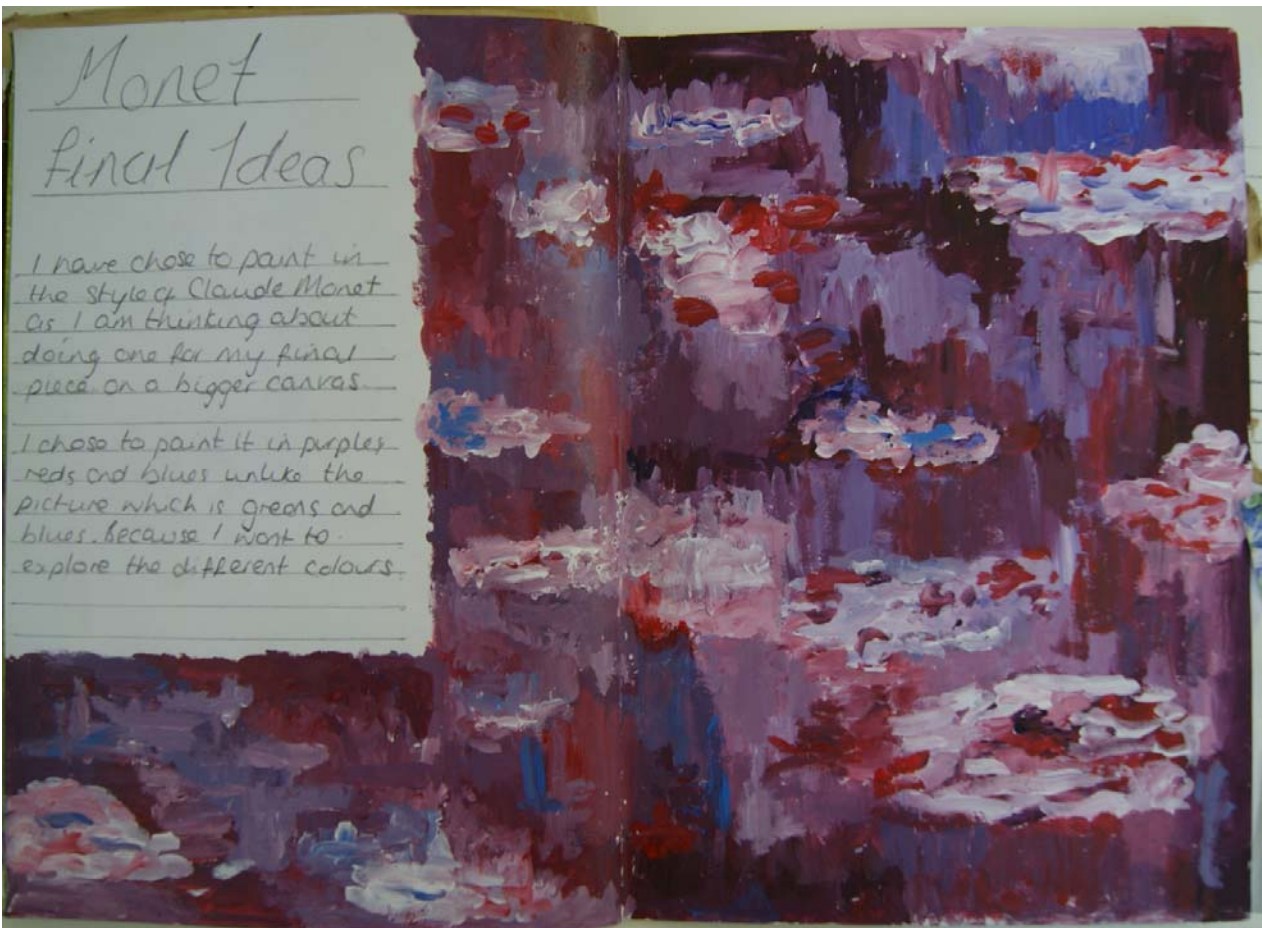 Monet
final Ideas
I have chose to paint in
the style of Claude Monet
as I am thinking about
doing one for my final
piece on a bigger canvas.
I chose to paint it in purples,
reds and blues unlike the
picture which is greens and
blues. Because I want to
explore the different colours.